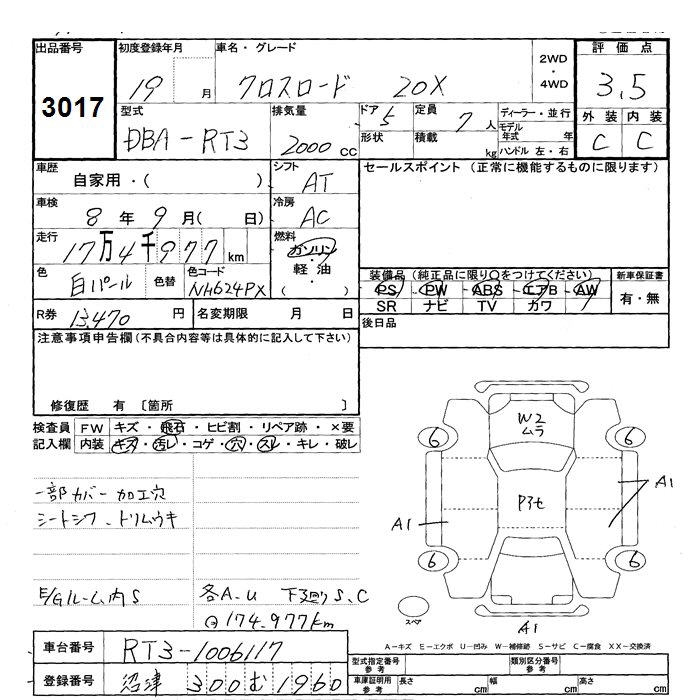 出品番号
3017
初度登録年月
19 月
車名・グレード
クロスロード 20X
2WD
・
4WD
評価点
3.5
外装 内装
C C
型式
DBA-RT3
排気量
2000 cc
ドア 5
形状
定員 7 人
積載 kg
ディーラー・並行
モデル年式 年
ハンドル 左・右
車歴
自家用・( )
シフト
AT
車検
8 年 9 月( 日)
冷房
AC
走行
17万4千977 km
燃料
ガソリン
・
軽油
( )
色
白パール
色替
色コード
NH624PX
セールスポイント (正常に機能するものに限ります)
装備品 (純正品に限り○をつけてください)
PS PW ABS エアB AW
SR ナビ TV カワ
新車保証書
有・無
R券 13,470 円
名変期限 月 日
後日品
注意事項申告欄(不具合内容等は具体的に記入して下さい)
修復歴 有 〔箇所 〕
検査員記入欄
FW キズ・飛石・ヒビ割・リペア跡・×要
内装 キズ・汚レ・コゲ・穴・スレ・キレ・破レ
一部カバー加工穴
シートシワ、トリムウキ
E/Gルーム内S
各A-U 下廻りS、C
174.977km
W2
ムラ
6 6
P3セ
A1 A1
6 6
スペア
A1
A-キズ E-エクボ U-凹み W-補修跡 S-サビ C-腐食 XX-交換済
車台番号
RT3-1006117
登録番号
沼津 300 む 1960
型式指定番号
参考
類別区分番号
参考
車庫証明用
参考
長さ cm
幅 cm
高さ cm